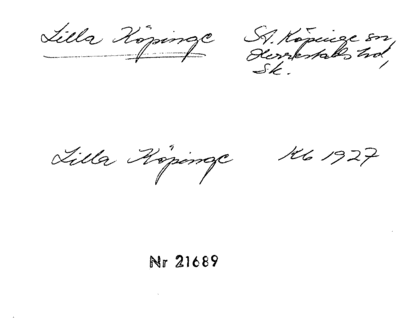 Lilla Köpinge St. Köpinge sn,
Herrestads hd,
Sk.
Lilla Köpinge Kb 1927
Nr 21689